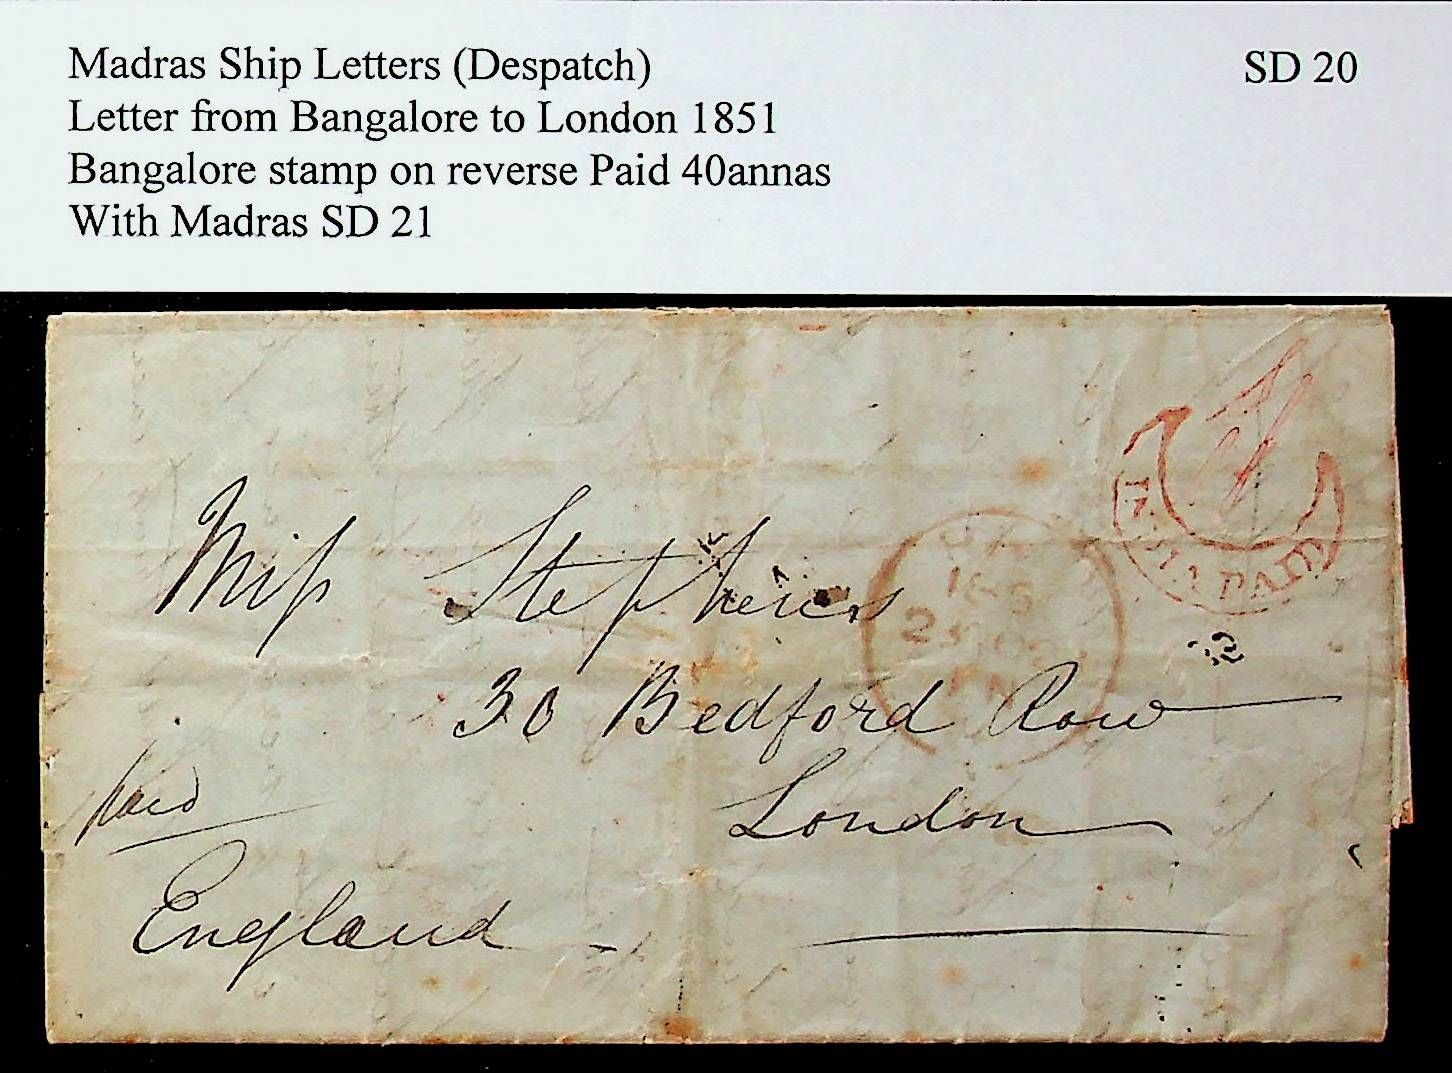 Madras Ship Letters (Despatch) SD 20
Letter from Bangalore to London 1851
Bangalore stamp on reverse Paid 40annas
With Madras SD 21
INDIA PAID
Miſs Stephens
30 Bedford Row
London
paid
England